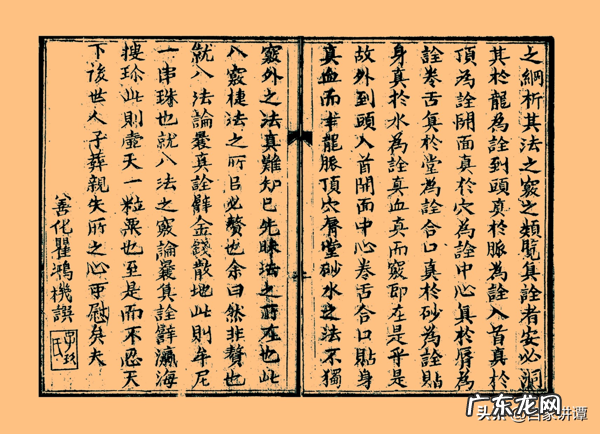 之綱析其法之竅之類覽其詮者安必洞
其於龍為詮到頭真於脈為詮入首真於
頂為詮開面真於穴為詮中心真於唇為
詮卷舌真於堂為詮合口真於砂為詮貼
身真於水為詮真血真而竅即在是乎是
故外到頭入首開面中心卷舌合口貼身
真血而求龍脈頂穴唇堂砂水之法不獨
竅外之法真難知已先昧法之所在也此
八竅捷法之所以必贅也余曰然非贅也
就八法論叢真詮辭金錢散地此則牟尼
一串珠也就八法之竅論叢真詮辭瀛海
搜珍此則壺天一粒粟也至是而不忍天
下後世人子葬親失所之心可慰矣夫
善化瞿鴻機譔
头条@百家讲谭
广东龙网